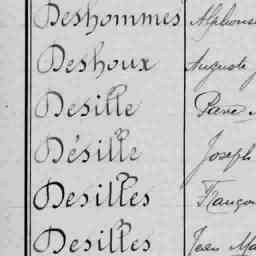 Deshommes Alphonse
Deshoux Auguste
Desille Pierre
Désille Joseph
Desilles François
Desilles Jean Ma